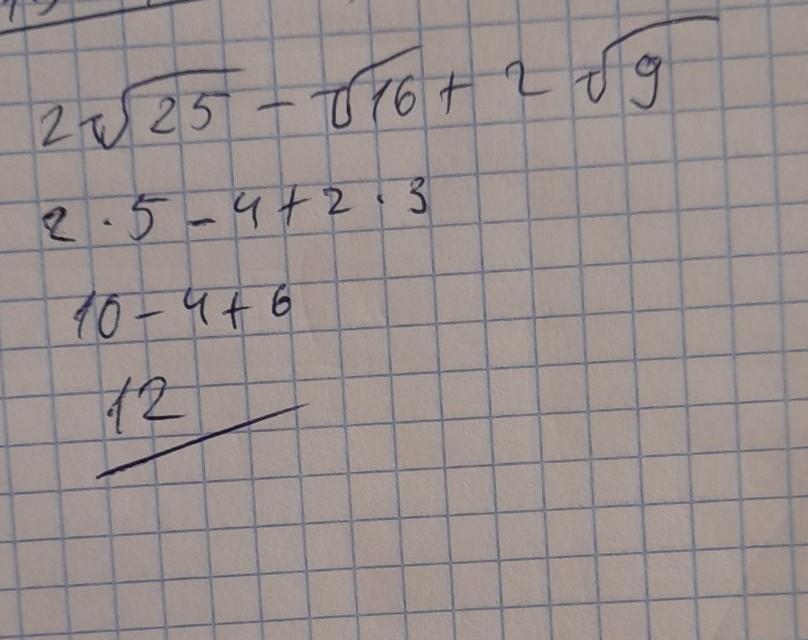 2√25 - √16 + 2√9
2 · 5 - 4 + 2 · 3
10 - 4 + 6
12